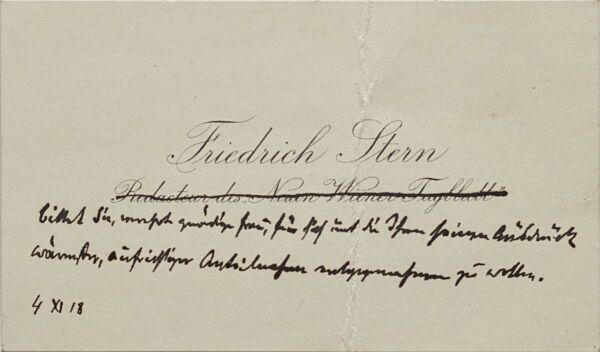 Friedrich Stern
Redacteur des „Neuen Wiener Tagblatt“
bittet Sie, verehrte gnädige Frau, für sich und die Ihren seinen Ausdruck
wärmster, aufrichtiger Anteilnahme entgegennehmen zu wollen.
4 XI 18